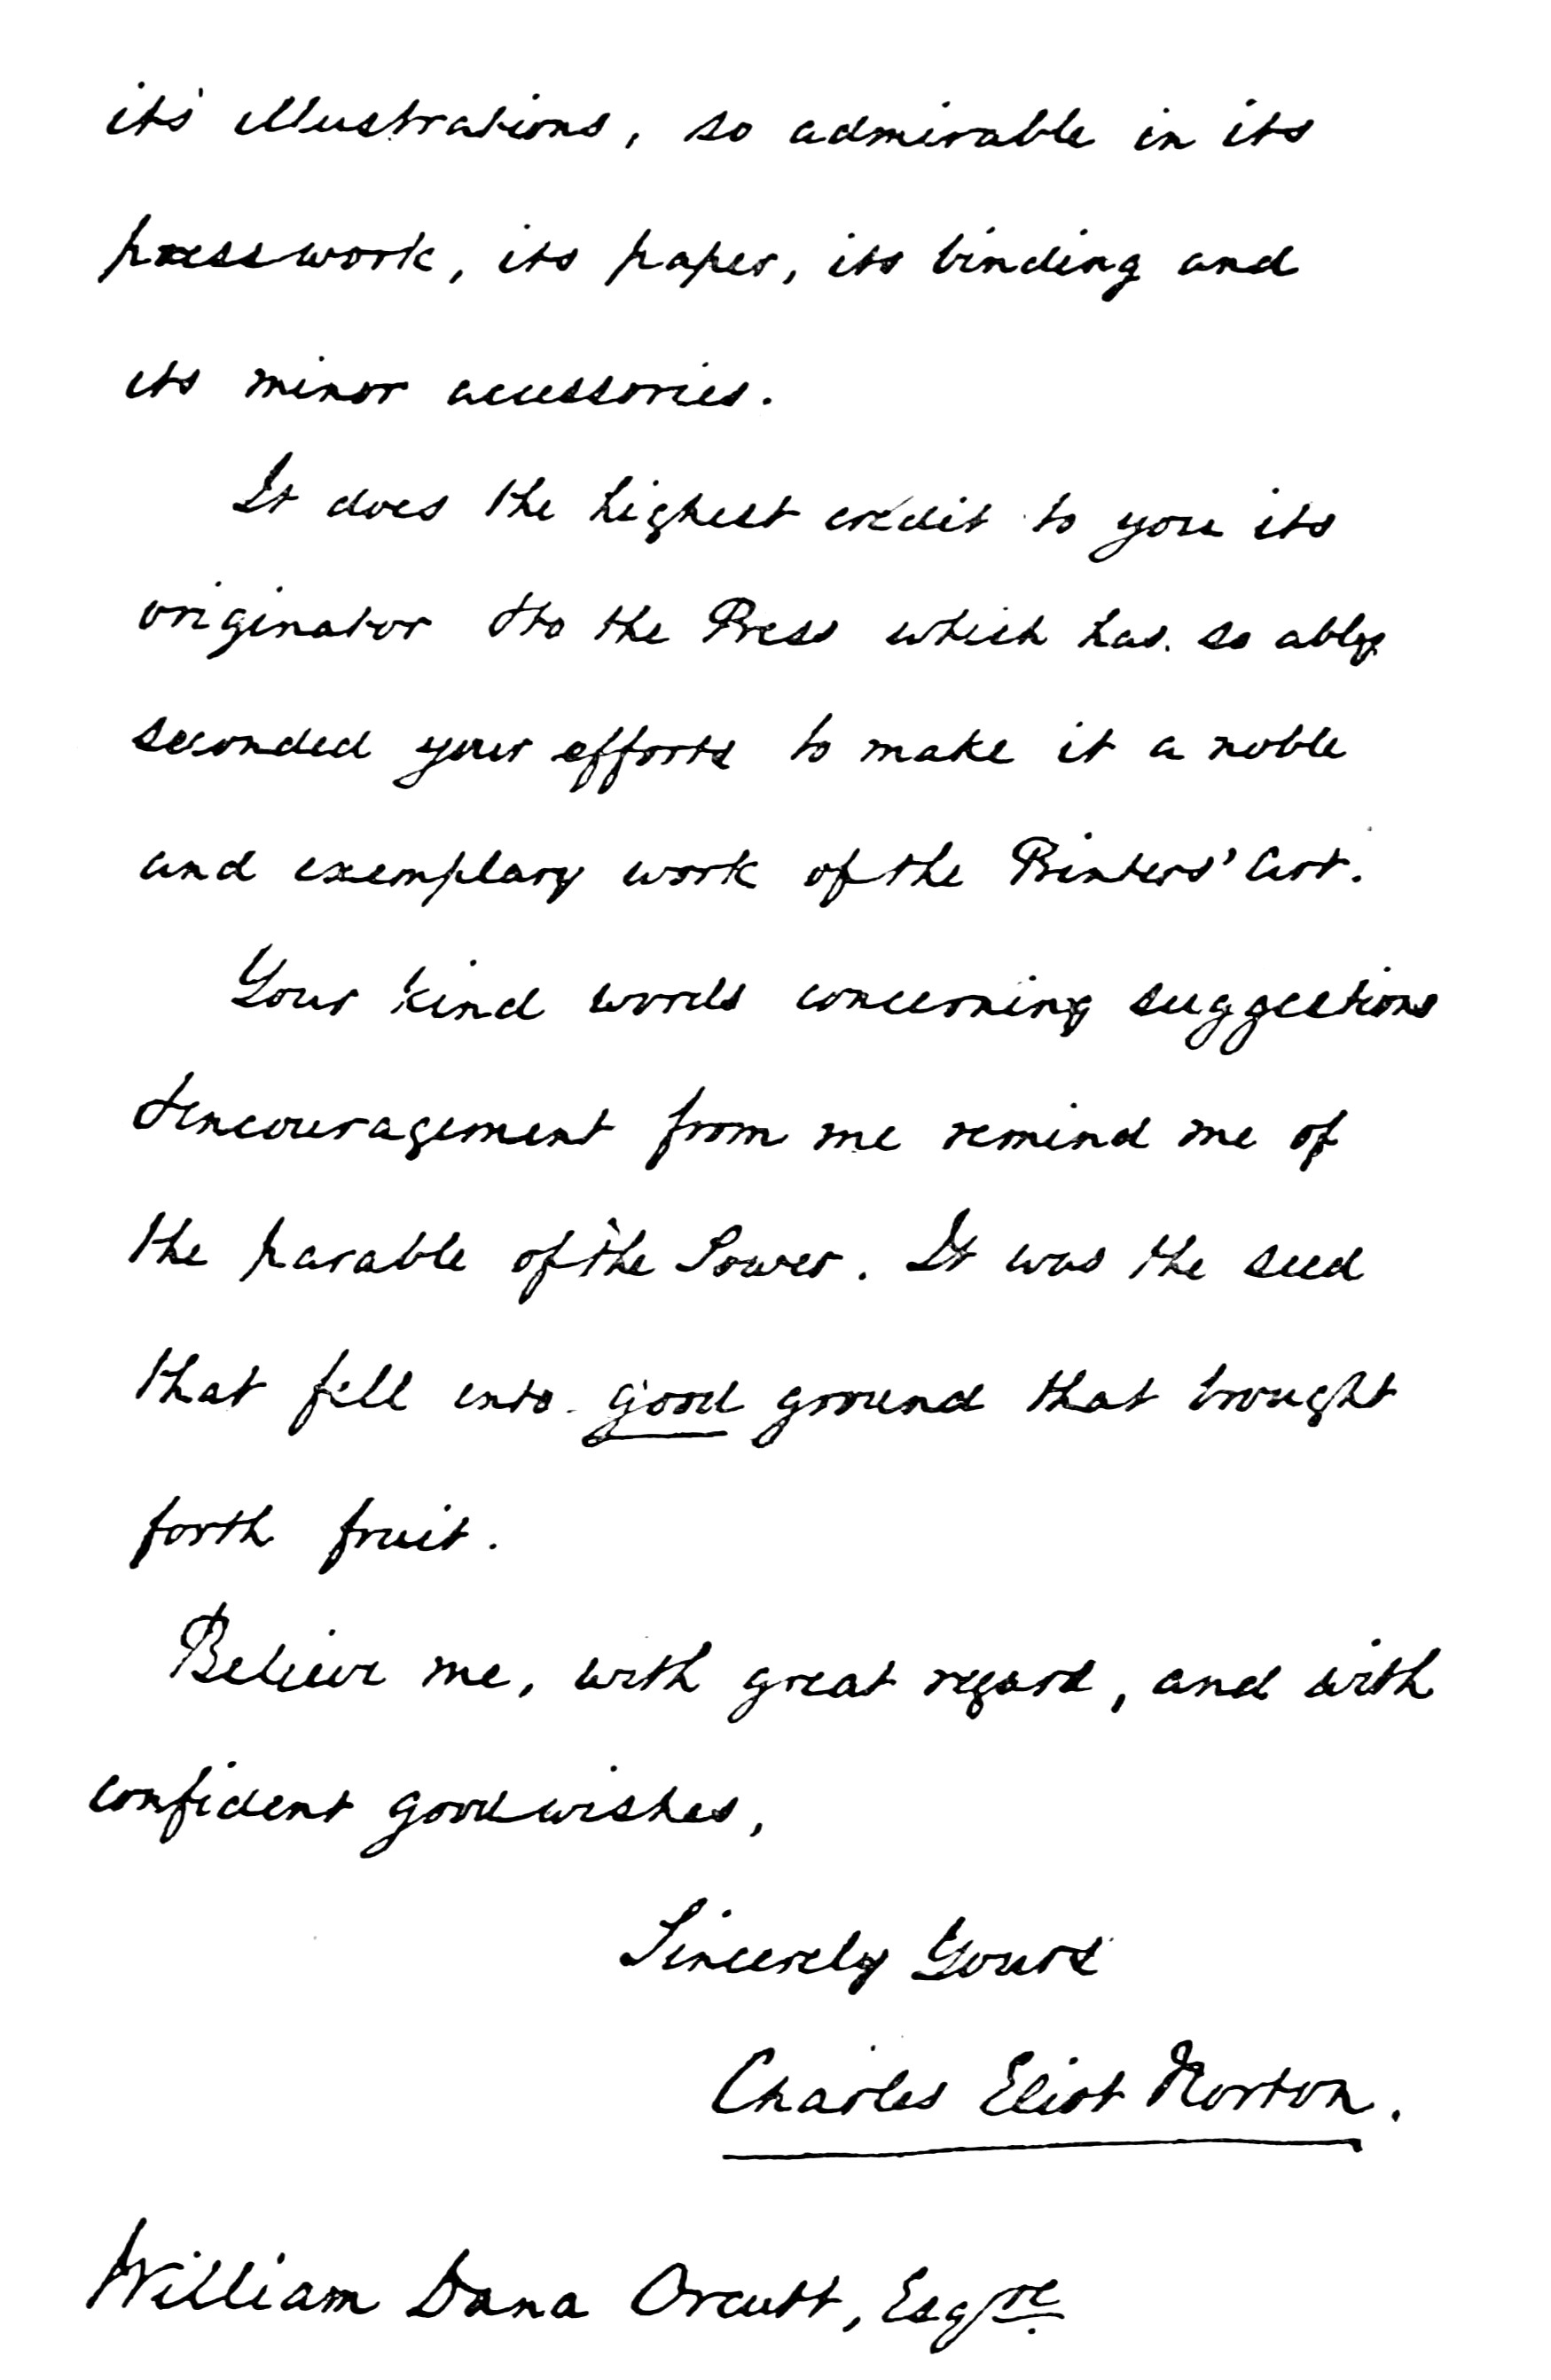 its illustrations, so admirable in its
presswork, its paper, its binding and
its minor accessories.
It does the highest credit to you its
originator & to the Press which has so ably
seconded your efforts to make it a noble
and exemplary work of the Printers' art.
Your kind words concerning suggestions
& encouragement from me remind me of
the parable of the Sower. It was the seed
that fell into good ground that brought
forth fruit.
Believe me, with great regard, and with
confident good wishes,
Sincerely Yours
Charles Eliot Norton.
William Dana Orcutt, Esqre.